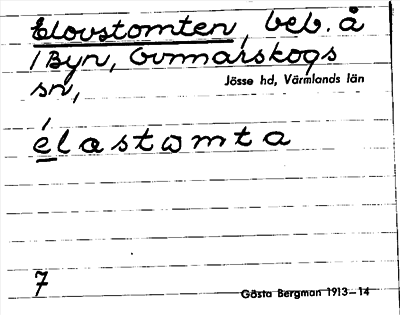 Elovstomten, beb. å
/Byn, Gunnarskogs
sn,
Jösse hd, Värmlands län
élastωmta
7
Gösta Bergman 1913–14